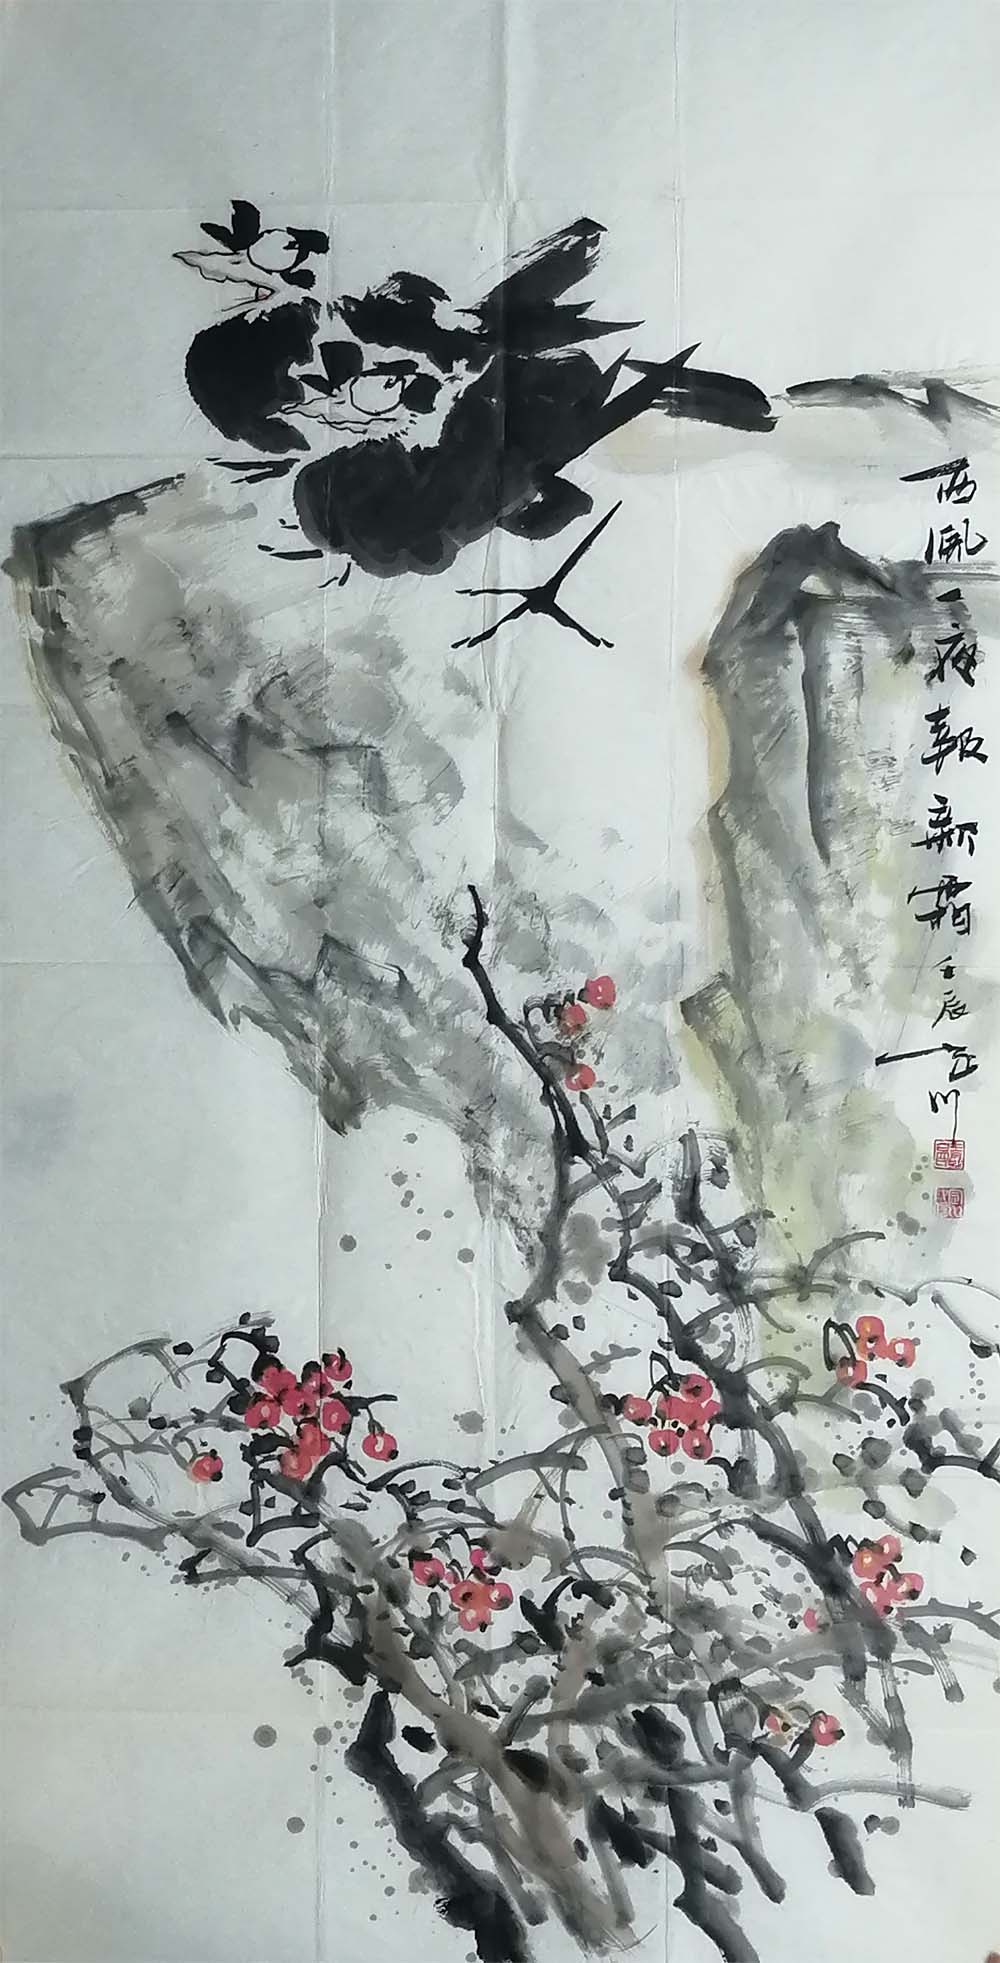 西風一夜報新霜 壬辰 一江川